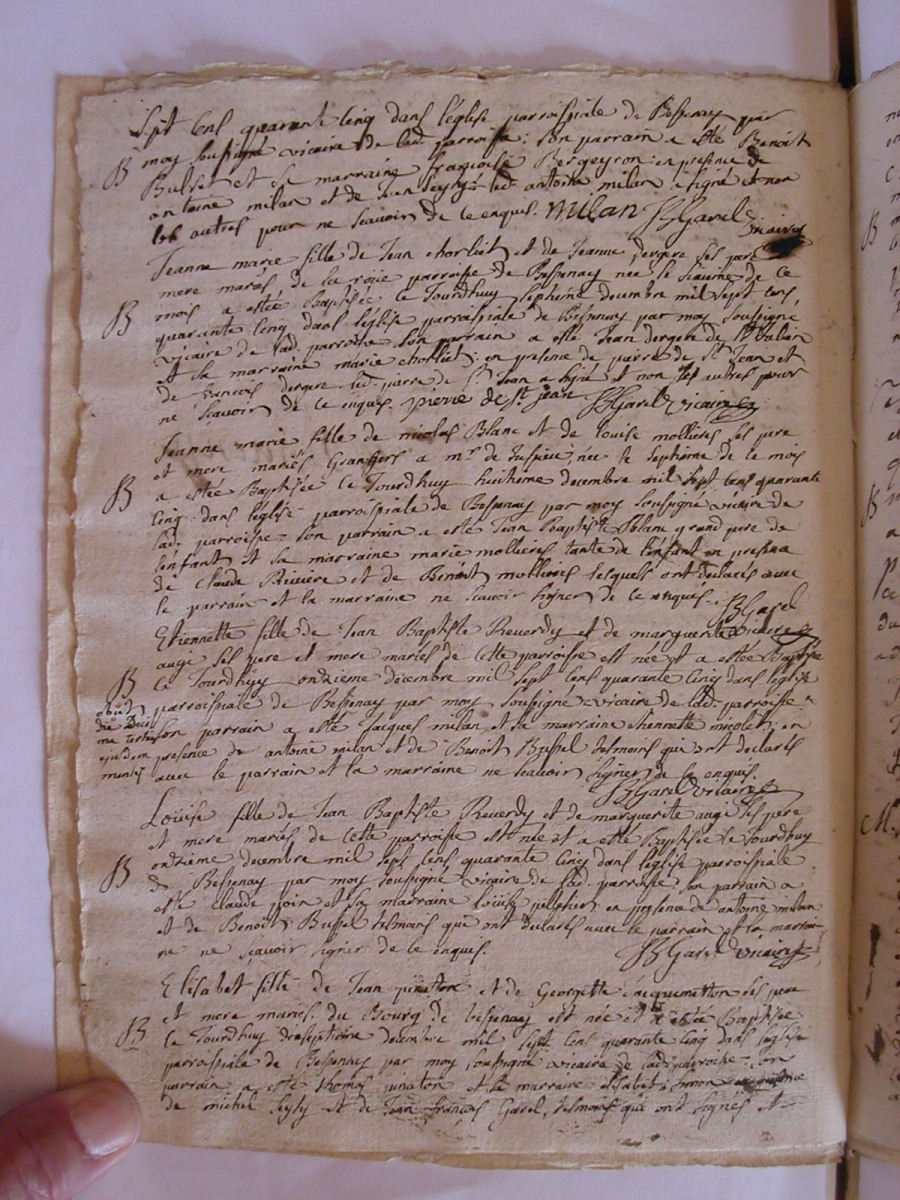 Sept Cens quarante Cinq dans l'église parroissiale de Bessenay par
B moy soussigné vicaire de lad. parroisse: son parrain a esté Benoit
et sa marraine françoise Bergeyron: en presence de
antoine milan et de Jean led. antoine milan a signé et non
les autres pour ne scavoir de ce enquis. Milan JB Garel
vicaire
Jeanne marie fille de Jean charliet et de Jeanne dergere ses pere
mere mariés de la parroisse de Bessenay née le sixieme de ce
B mois a estée Baptisée ce Jourdhuy septieme decembre mil sept cens,
quarante Cinq dans l'église parroissiale de Bessenay par moy soussigné
vicaire de lad. parroisse son parrain a esté Jean dergere de St Julien
et sa marraine marie : en presence de pierre de St Jean et
de françois dergere led. pierre de St Jean a signé et non les autres pour
ne scavoir de ce enquis. pierre de St jean JB Garel vicaire
Jeanne marie fille de nicolas Blanc et de Louise mollieres ses pere
et mere mariés Grangers a mr de née le septieme de ce mois
B a estée Baptisée ce Jourdhuy huitieme decembre mil sept Cens quarante
Cinq dans l'église parroissiale de Bessenay par moy soussigné vicaire de
lad. parroisse - son parrain a esté Jean Baptiste Blanc grand pere de
l'enfant et sa marraine marie mollieres tante de l'enfant en presence
de claude Riviere et de Benoist mollieres lesquels ont declarés avec
le parrain et la marraine ne scavoir signer de ce enquis. JB Garel
Etiennette fille de Jean Baptiste Reverdy et de marguerite vicaire
augi ses pere et mere mariés de cette parroisse est née et a estée Baptisée
B ce Jourdhuy onzieme decembre mil sept Cens quarante Cinq dans l'église
obiit parroissiale de Bessenay par moy soussigné vicaire de lad. parroisse:
die Deci
mo tertio son parrain a esté Jacques milan et sa marraine etiennette micolet; en
ejusdem presence de antoine milan et de Benoit Bussel temoins qui ont declarés
mensis avec le parrain et la marraine ne scavoir signer de ce enquis.
JB Garel vicaire
Loüise fille de Jean Baptiste Reverdy et de marguerite augi ses pere
et mere mariés de cette parroisse est née et a esté Baptisée ce Jourdhuy
B onzieme decembre mil sept Cens quarante Cinq dans l'église parroissiale
de Bessenay par moy soussigné vicaire de lad. parroisse, son parrain a
esté claude et sa marraine Loüise pelletier, en presence de antoine milan
et de Benoit Bussel temoins qui ont declarés avec le parrain et la marrai-
ne ne scavoir signer de ce enquis. JB Garel vicaire
Elisabet fille de Jean et de Georgette Jacquemetton ses pere
et mere mariés du Bourg de bessenay est née et a estée Baptisée
B ce Jourdhuy dixseptieme decembre mil sept Cens quarante Cinq dans l'église
parroissiale de Bessenay par moy soussigné vicaire de lad. parroisse - son
parrain a esté thomas et sa marraine elisabet
de michel et de Jean françois Garel, temoins qui ont signés et